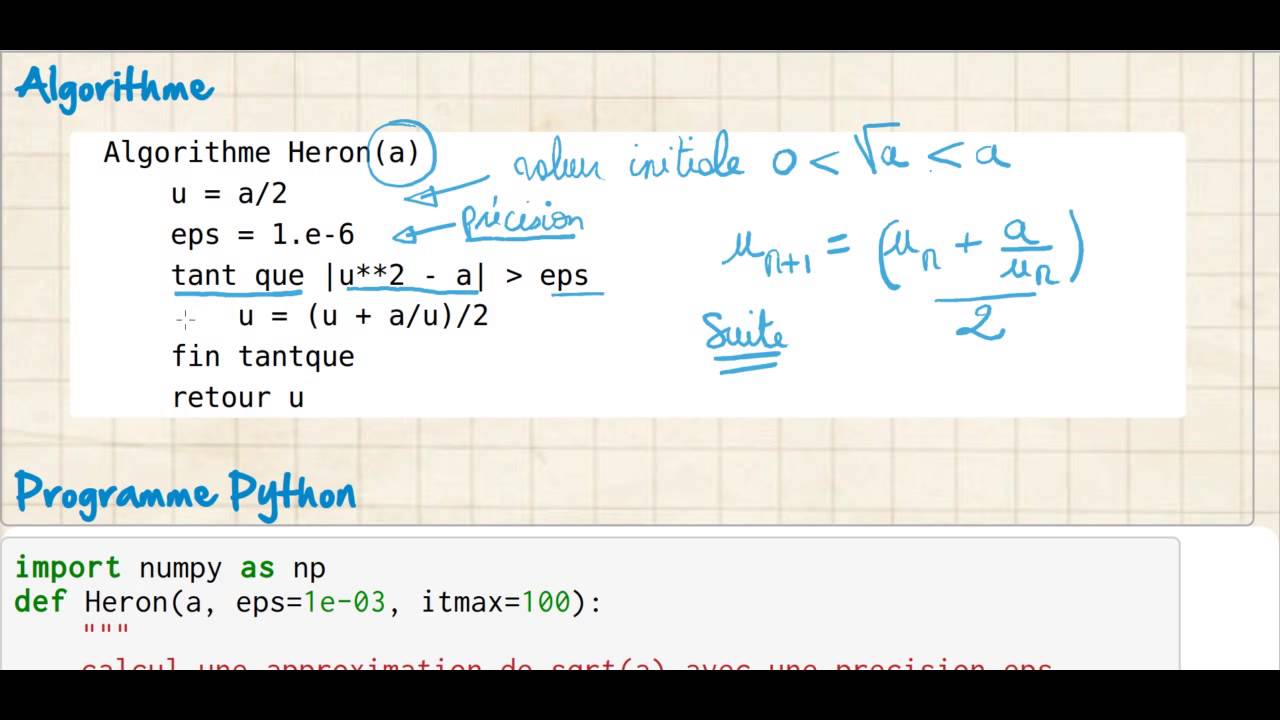 Algorithme
Algorithme Heron(a)
valeur initiale 0 < √a < a
u = a/2
précision
eps = 1.e-6
u_{n+1} = (u_n + a/u_n)/2
tant que |u**2 - a| > eps
u = (u + a/u)/2
Suite
fin tantque
retour u
Programme Python
import numpy as np
def Heron(a, eps=1e-03, itmax=100):
"""
calcul une approximation de sqrt(a) avec une precision eps